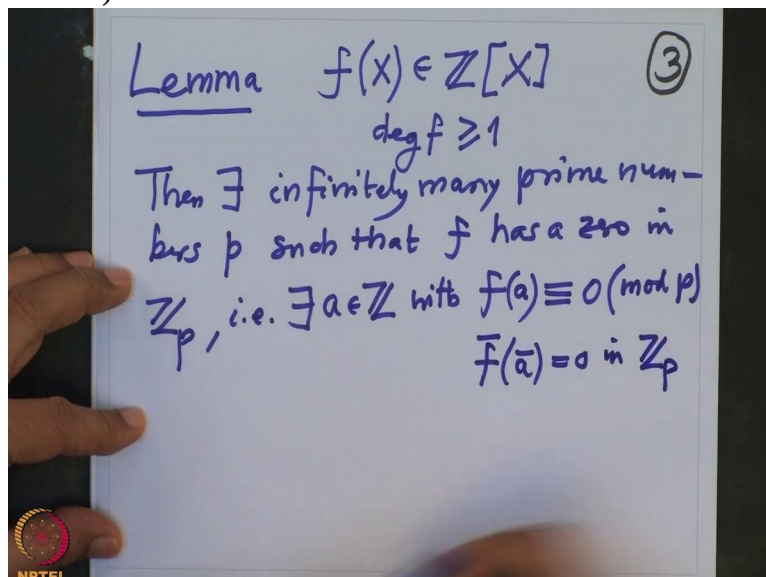 Lemma f(X) ∈ ℤ[X] ③
deg f ⩾ 1
Then ∃ infinitely many prime num-
bers p such that f has a zero in
ℤ_p, i.e. ∃ a ∈ ℤ with f(a) ≡ 0 (mod p)
f̄(ā) = 0 in ℤ_p
NPTEL